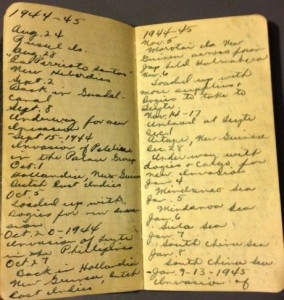 1944-45
Aug. 24
Russel Is.
Aug. 28
Espiritu Santo
New Hebrides
Sept. 2
Back in Guadal-
canal
Sept. 8
Underway for new
invasion
Sept 15-1944
Invasion of Peleliue
in the Palau Group
Oct. 1
Hollandia, New Guinea
Dutch East Indies
Oct 5
Loaded up with
Dogies for new inva-
sion
Oct 20-1944
Invasion of Leyte
in the Philippine
Oct 27
Back in Hollandia
New Guinea, Dutch
East Indies
1944-45
Nov. 5
Morotai Is. New
Guinea across from
Jap held Halmahera
Nov. 6
Loaded up with
more supplies,
Dogies to take to
Leyte
Nov. 14-17
Unload at Leyte
Dec 1
New Guinea
Dec 28
Underway with
dogies & cargo for
new invasion
Jan. 4
Mindanao Sea
Jan. 5
Mindanoa Sea
Jan. 6
Sulu Sea
Jan. 7
South China Sea
Jan.
South China Sea
Jan. 9-13-1945
Invasion of